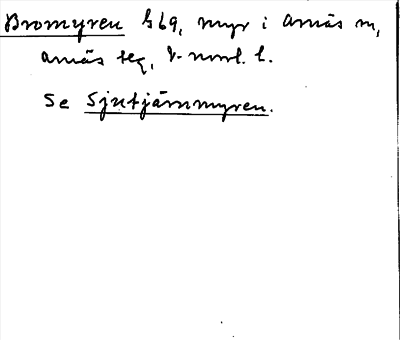 Bromyren G 69, myr i Arnäs sn,
Arnäs sky, V-norrl. l.
Se Sjutjärnmyren.